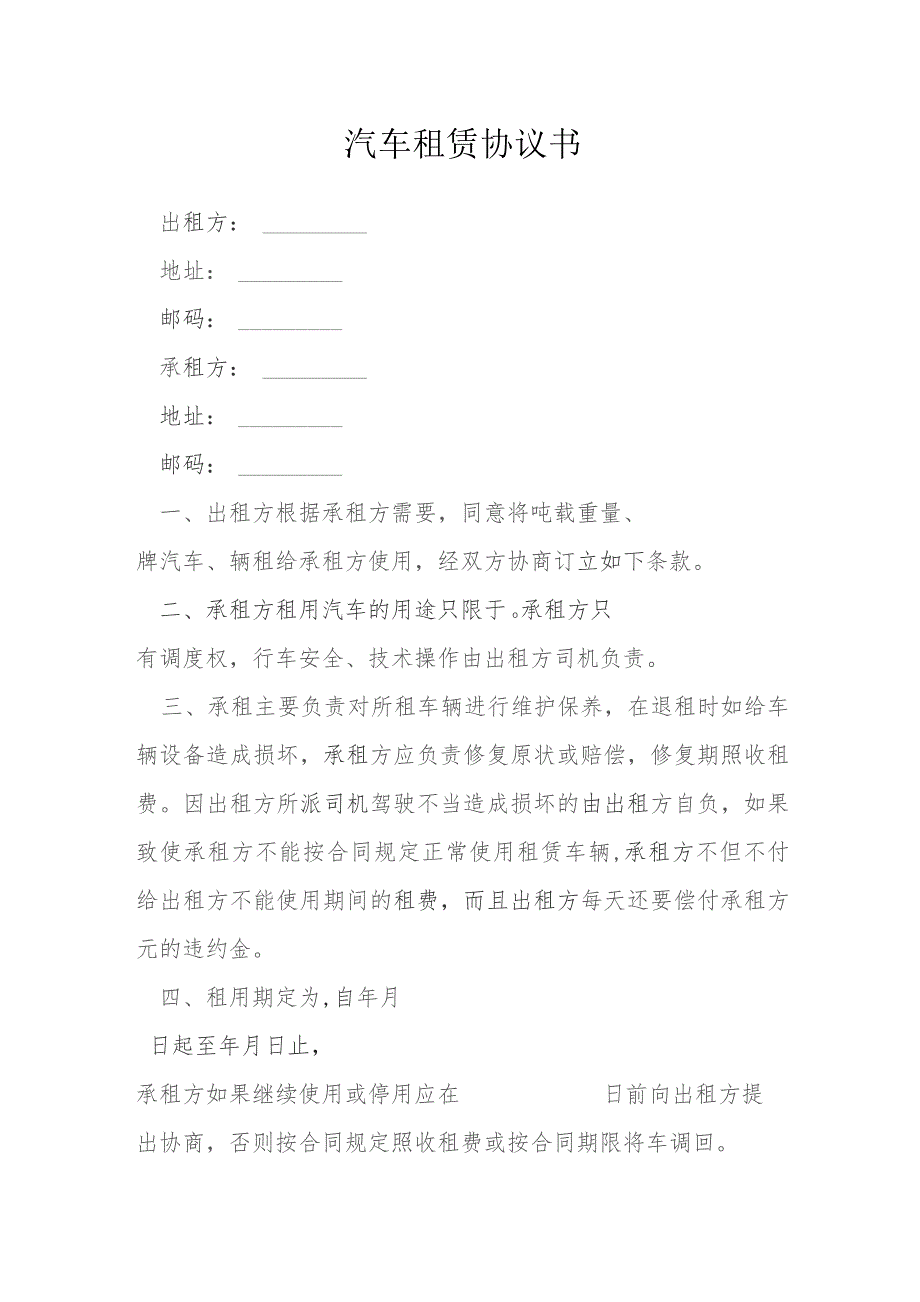 汽车租赁协议书
出租方： _________
地址： _________
邮码： _________
承租方： _________
地址： _________
邮码： _________
一、出租方根据承租方需要，同意将吨载重量、
牌汽车、辆租给承租方使用，经双方协商订立如下条款。
二、承租方租用汽车的用途只限于。承租方只
有调度权，行车安全、技术操作由出租方司机负责。
三、承租主要负责对所租车辆进行维护保养，在退租时如给车
辆设备造成损坏，承租方应负责修复原状或赔偿，修复期照收租
费。因出租方所派司机驾驶不当造成损坏的由出租方自负，如果
致使承租方不能按合同规定正常使用租赁车辆,承租方不但不付
给出租方不能使用期间的租费，而且出租方每天还要偿付承租方
元的违约金。
四、租用期定为,自年月
日起至年月日止，
承租方如果继续使用或停用应在 日前向出租方提
出协商，否则按合同规定照收租费或按合同期限将车调回。